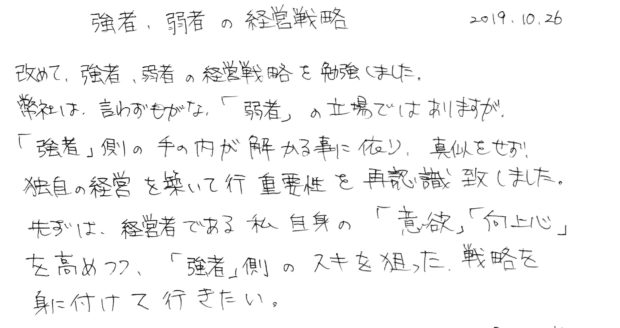 強者、弱者の経営戦略 2019.10.26
改めて、強者、弱者の経営戦略を勉強しました。
弊社は、言わずもがな、「弱者」の立場ではありますが、
「強者」側の手の内が解かる事に依り、真似をせず、
独自の経営を築いて行重要性を再認識致しました。
先ずは、経営者である私自身の「意欲」「向上心」
を高めつつ、「強者」側のスキを狙った、戦略を
身に付けて行きたい。